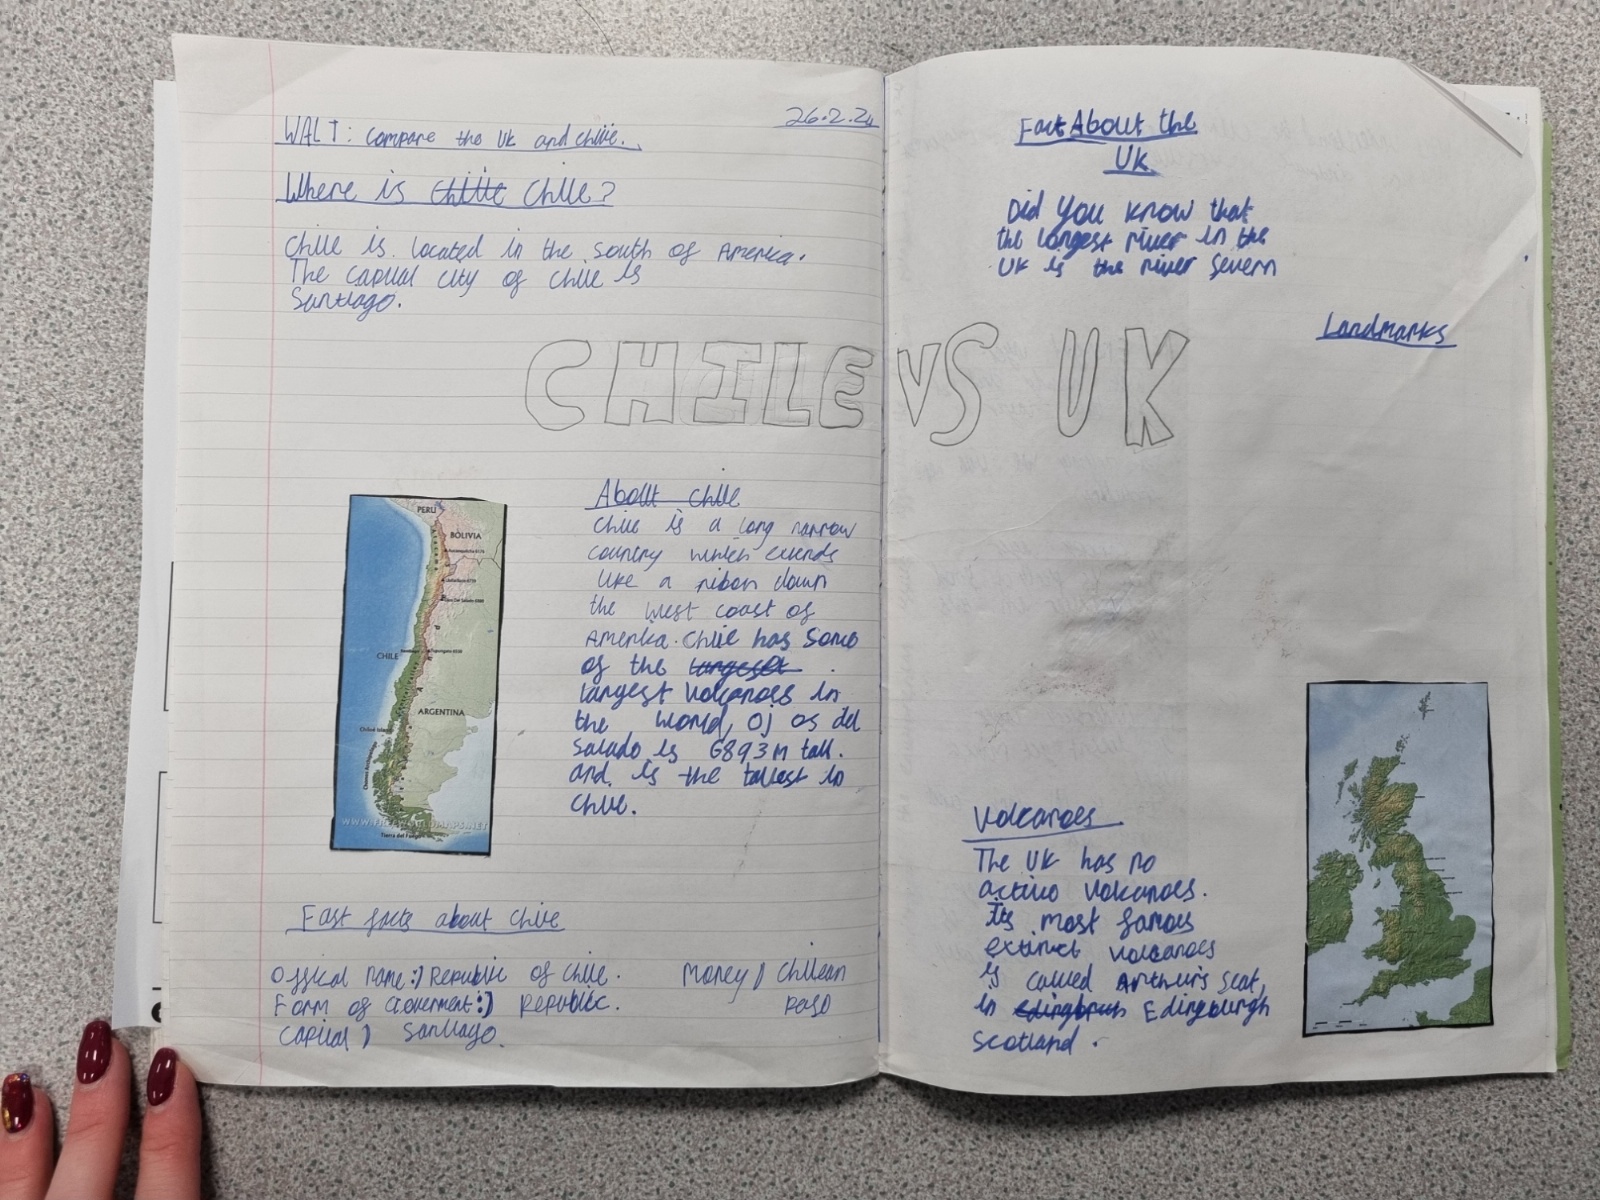 26.2.24
WALT: Compare the UK and Chile.
Where is Chille Chile?
Chile is located in the South of America.
The capital city of Chile is
Santiago.
CHILE VS UK
PERU
BOLIVIA
CHILE
ARGENTINA
Tierra del Fuego
About Chile
Chile is a long narrow
country which extends
like a ribon down
the west coast of
America. Chile has some
of the largeset
largest volcanoes in
the world, Oj os del
Salado is 6893M tall.
and is the tallest in
Chile.
Fast facts about Chile
Offical name:) Republic of Chile.
Form of Goverment:) Republic.
Capital) Santiago.
Money) Chilean
Paso
Fact About the
UK
Did you know that
the longest river in the
UK is the river Severn
Landmarks
Volcanoes
The UK has no
active volcanoes.
Its most famous
extinct volcanoes
is called Arthur's seat,
in Edingbruh Edingburgh
Scotland.